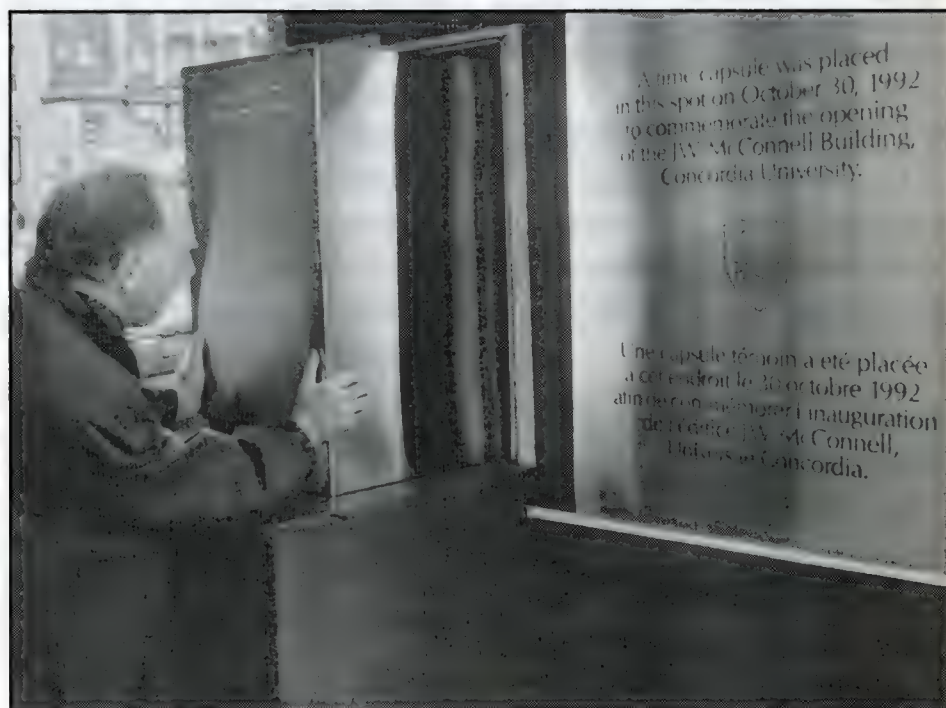 A time capsule was placed
in this spot on October 30, 1992
to commemorate the opening
of the J.W. McConnell Building,
Concordia University.
Une capsule témoin a été placée
à cet endroit le 30 octobre 1992
afin de commémorer l'inauguration
de l'édifice J.W. McConnell,
Université Concordia.